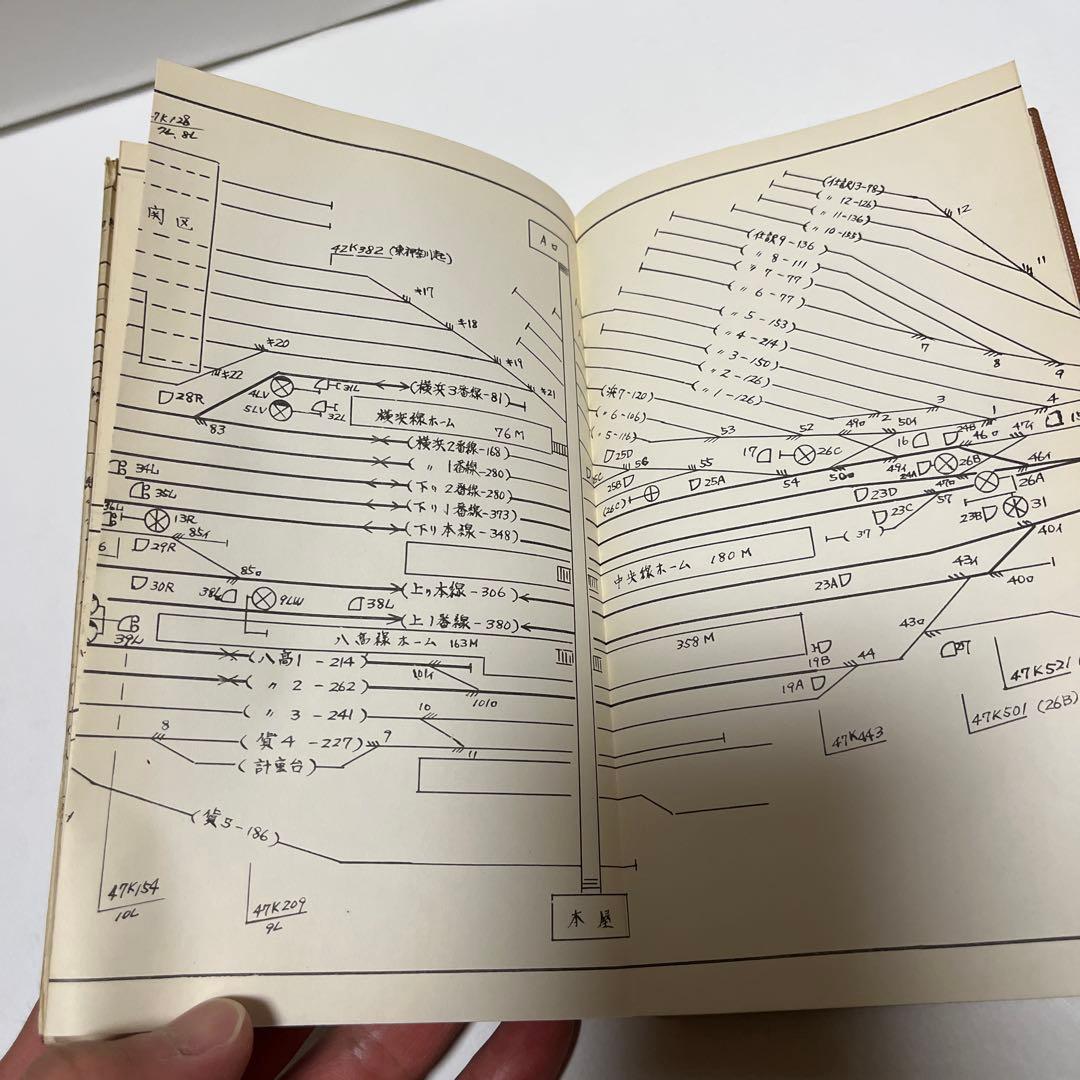 7L, 8L
関区
42K382 (東神奈川起)
キ17
キ18
キ19
キ20
キ21
キ22
28R
4LV
31L
5LV
32L
83
(横浜3番線-81)
横浜線ホーム
76M
(横浜2番線-168)
(〃 1番線-280)
(下り2番線-280)
(下り1番線-373)
(下り本線-348)
34L
35L
36L
13R
85イ
29R
6
85ロ
30R
38L
9LW
38L
39L
(上り本線-306)
(上1番線-380)
八高線ホーム 163M
(八高1-214)
101イ
(〃 2-262)
101ロ
(〃 3-241)
10
8
(貨4-227)
9
11
(計重台)
(貨5-186)
47K154
10L
47K209
9L
A口
本屋
(仕訳13-98)
(〃 12-126)
(〃 11-136)
(〃 10-155)
12
11
(仕訳9-136)
(〃 8-111)
(〃 7-77)
(〃 6-77)
(〃 5-153)
(〃 4-214)
(〃 3-150)
(〃 2-126)
(〃 1-126)
7
8
9
(浜7-120)
(〃 6-106)
(〃 5-116)
53
52
49ロ
2
50イ
3
1
4
16
24B
46ロ
47イ
25D
56
55
17
26C
54
50ロ
49イ
24A
26B
46イ
25B
(26C)
25A
23D
47ロ
57
26A
23C
23B
31
(37)
40イ
中央線ホーム 180M
23A
43イ
40ロ
358M
19B
43ロ
19A
44
27
47K521
47K501 (26B)
47K443